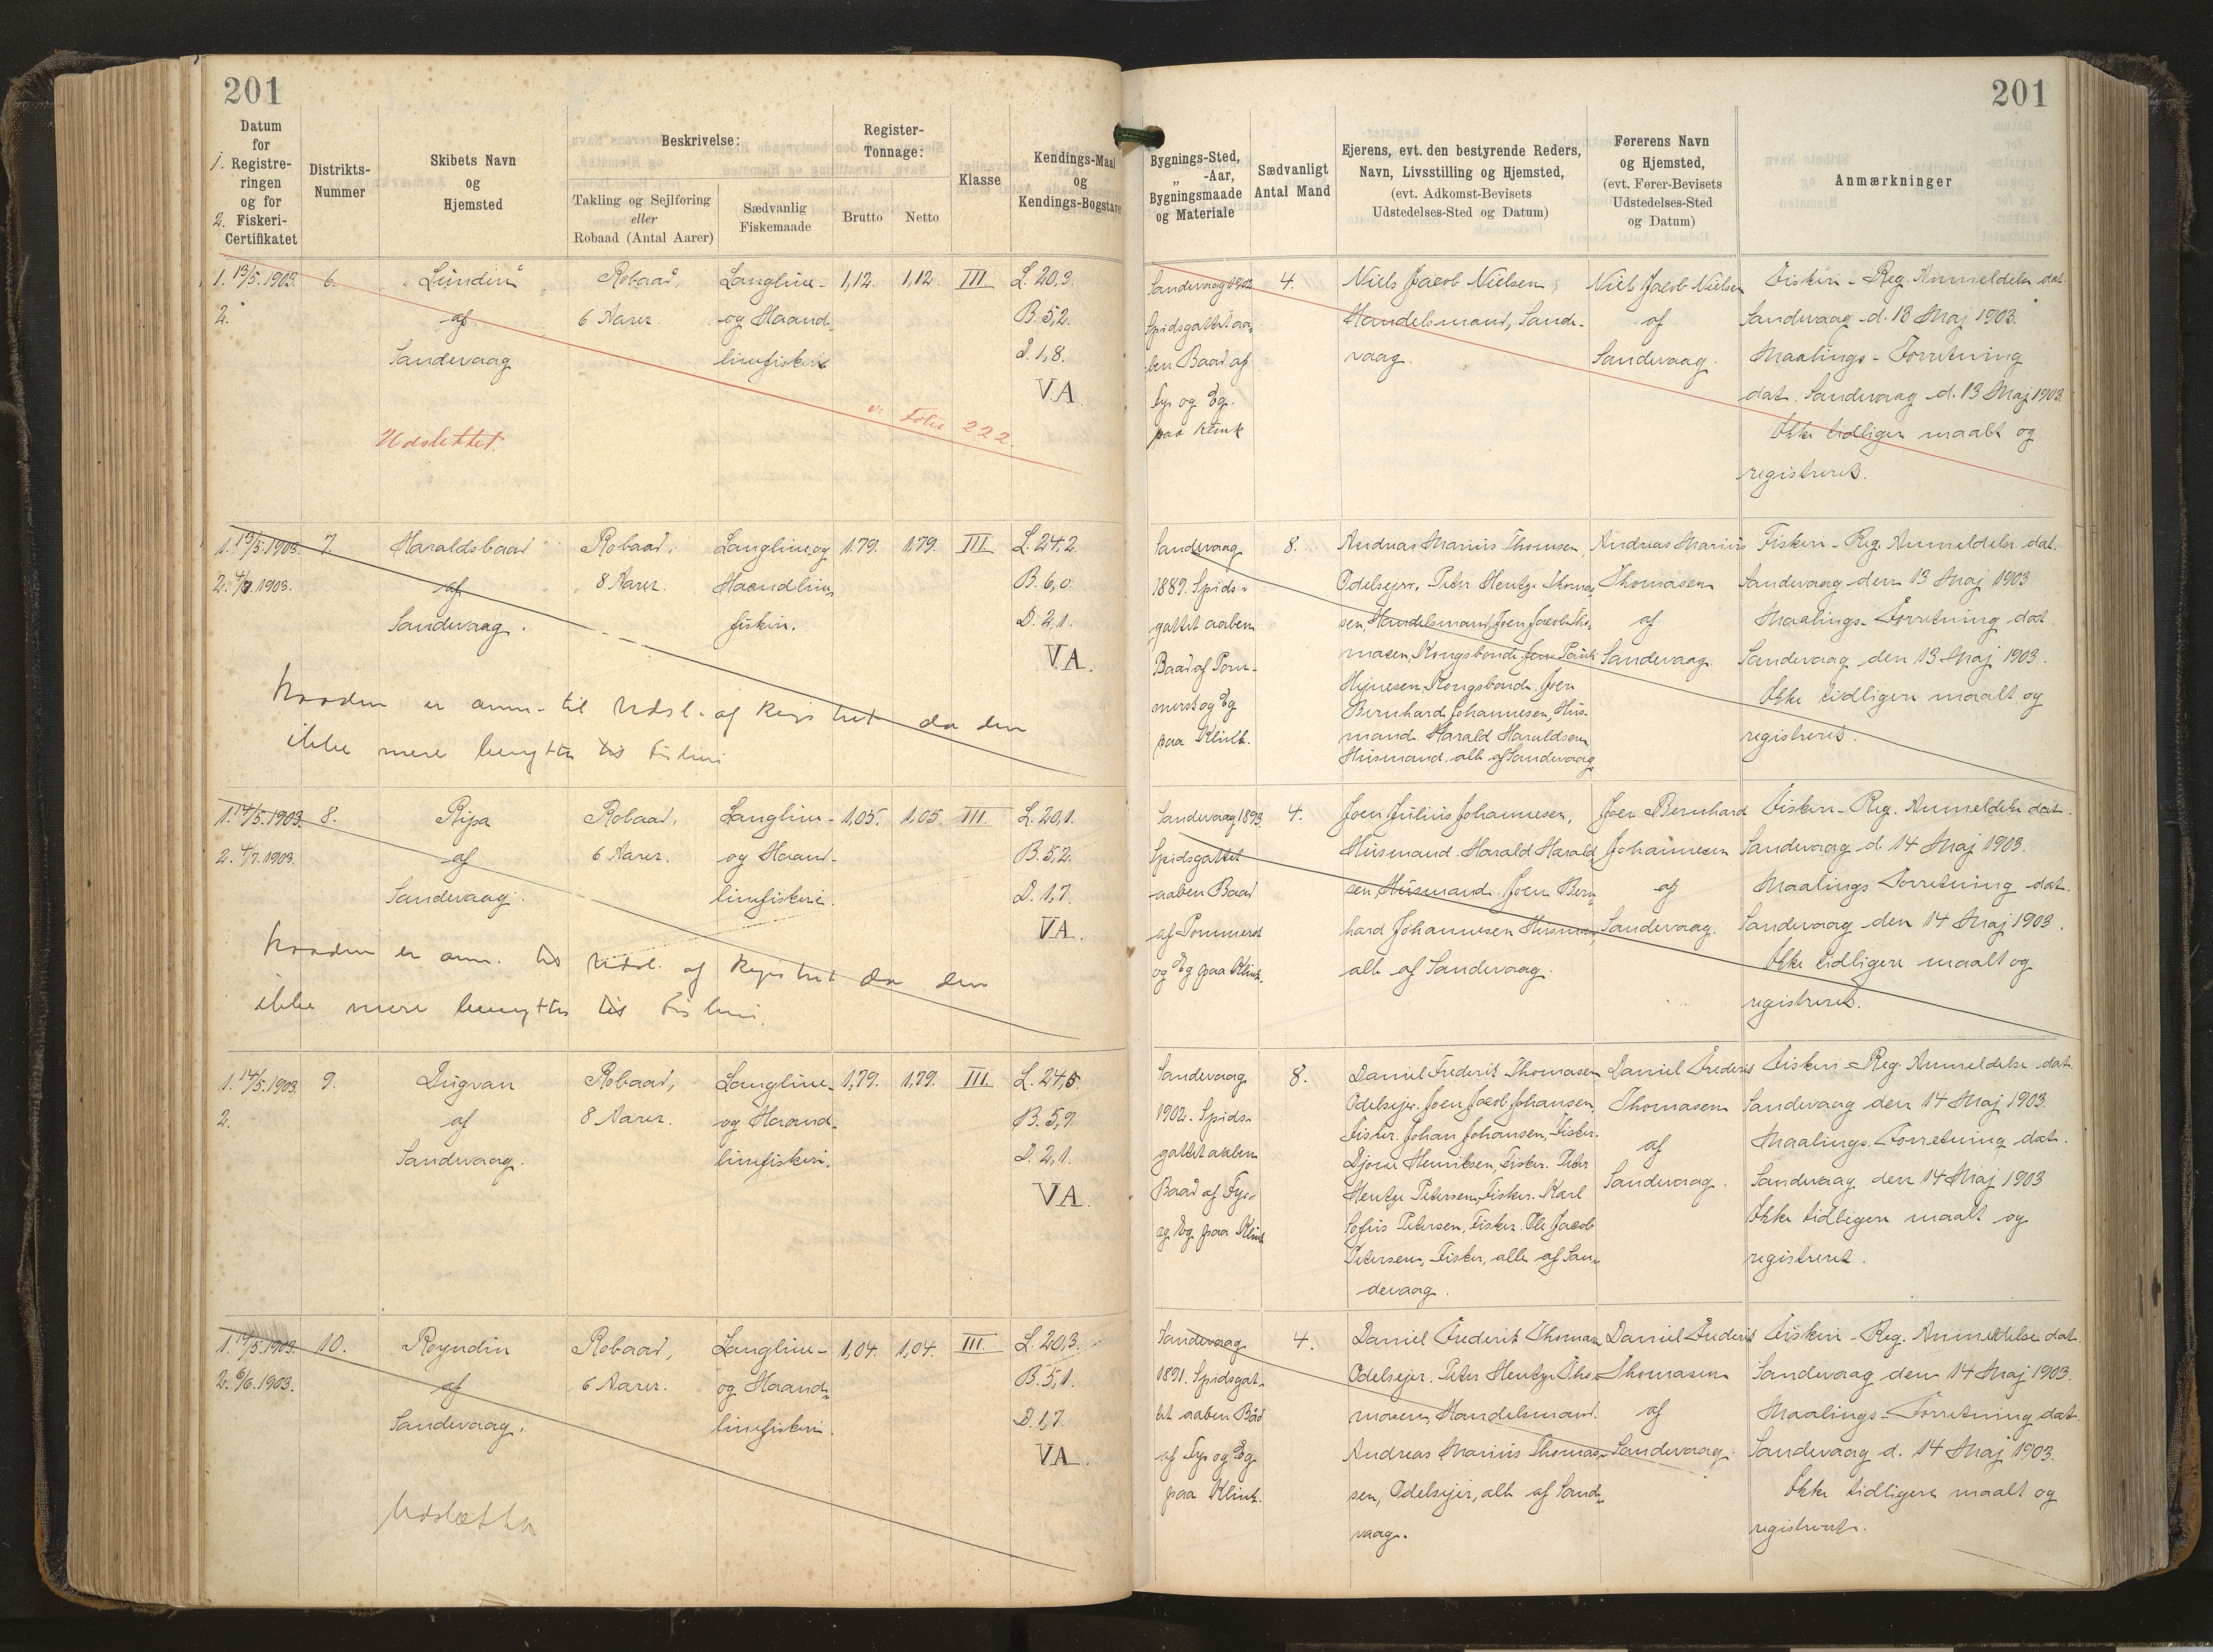 201
201
Datum
for
1. Registre-
ringen
og for
2. Fiskeri-
Certifikatet
Distrikts-
Nummer
Skibets Navn
og
Hjemsted
Beskrivelse:
Takling og Sejlføring
eller
Robaad (Antal Aarer)
Sædvanlig
Fiskemaade
Register-
Tonnage:
Brutto
Netto
Klasse
Kendings-Maal
og
Kendings-Bogstaver
Bygnings-Sted,
„ -Aar,
Bygningsmaade
og Materiale
Sædvanligt
Antal Mand
Ejerens, evt. den bestyrende Reders,
Navn, Livsstilling og Hjemsted,
(evt. Adkomst-Bevisets
Udstedelses-Sted og Datum)
Førerens Navn
og Hjemsted,
(evt. Fører-Bevisets
Udstedelses-Sted
og Datum)
Anmærkninger
1. 13/5. 1903.
2.
6.
"Lundin"
af
Sandevaag
Robaad,
6 Aarer.
Langline-
og Haand-
linefiskeri
1,12.
1,12.
III
L. 20,3.
B. 5,2.
D. 1,8.
VA
Udslettet.
v. Folio 222.
Sandevaag 1902
Spidsgattet aa-
ben Baad af
Fyr og Eg.
paa Klink
4.
Niels Jacob Nielsen,
Handelsmand, Sande-
vaag.
Niels Jacob Nielsen
af
Sandevaag.
Fiskeri-Reg. Anmeldelse dat.
Sandevaag d. 13 Maj 1903.
Maalings-Forretning
dat. Sandevaag d. 13 Maj 1903.
Ikke tidligere maalt og
registreret.
1. 13/5. 1903.
2. 4/7. 1903.
7.
Haraldsbaad
af
Sandevaag.
Robaad,
8 Aarer.
Langline og
Haandline-
fiskeri.
1.79.
1,79.
III
L. 24,2.
B. 6,0.
D. 2,1.
VA.
Baaden er anm. til Udsl. af Registret da den
ikke mere benyttes til Fiskeri
Sandevaag
1889. Spids-
gattet aaben
Baad af Pom-
mersk og Eg
paa Klink.
8.
Andreas Marius Thomsen,
Odelsejer. Peter Hentze Thoma-
sen, Handelsmand. Joen Jacob Tho-
masen, Kongsbonde. Poul
Hejnesen, Kongsbonde. Joen
Bernhard Johannesen, Hus-
mand. Harald Haraldsen
Husmand. alle af Sandevaag
Andreas Marius
Thomasen
af
Sandevaag.
Fiskeri-Reg. Anmeldelse dat.
Sandevaag den 13 Maj 1903
Maalings-Forretning dat.
Sandevaag den 13 Maj 1903.
Ikke tidligere maalt og
registreret.
1. 14/5. 1903.
2. 4/7. 1903.
8.
Ripa
af
Sandevaag.
Robaad,
6 Aarer.
Langline-
og Haand-
linefiskeri.
1,05.
1,05.
III.
L. 20,1.
B. 5,2.
D. 1,7.
VA.
Baaden er anm. til Udsl. af Registret da den
ikke mere benyttes til Fiskeri.
Sandevaag 1893
Spidsgattet
aaben Baad
af Pommersk
og Eg paa Klink.
4.
Joen Julius Johannesen,
Husmand. Harald Harald-
sen, Husmand. Joen Bern-
hard Johannesen Husmand,
alle af Sandevaag.
Joen Bernhard
Johannesen
af
Sandevaag.
Fiskeri-Reg. Anmeldelse dat.
Sandevaag d. 14 Maj 1903.
Maalings Forretning dat.
Sandevaag den 14 Maj 1903.
Ikke tidligere maalt og
registreret.
1. 14/5. 1903
2.
9.
Dugvan
af
Sandevaag.
Robaad,
8 Aarer.
Langline-
og Haand-
linefiskeri.
1,79.
1,79.
III.
L. 24,5.
B. 5,9.
D. 2,1.
VA.
Sandevaag
1902. Spids-
gattet aaben
Baad af Fyr
og Eg paa Klink
8.
Daniel Frederik Thomasen
Odelsejer. Joen Jacob Johansen,
Fisker. Johan Johansen, Fisker.
Djone Henriksen, Fisker. Peter
Hentze Petersen, Fisker. Karl
Sofus Petersen, Fisker. Ole Jacob
Petersen, Fisker, alle af San-
devaag.
Daniel Frederik
Thomasen
af
Sandevaag.
Fiskeri-Reg. Anmeldelse dat.
Sandevaag den 14 Maj 1903.
Maalings-Forretning dat.
Sandevaag den 14 Maj 1903
Ikke tidligere maalt og
registreret.
1. 14/5. 1903.
2. 6/6. 1903.
10.
Royndin
af
Sandevaag.
Robaad,
6 Aarer.
Langline-
og Haand-
linefiskeri.
1,04.
1,04.
III.
L. 20,3.
B. 5,1.
D. 1,7.
VA.
Udslettes
Sandevaag
1891. Spidsgat-
tet aaben Båd
af Fyr og Eg
paa Klink.
4.
Daniel Frederik Thomasen
Odelsejer. Peter Hentze Tho-
masen, Handelsmand.
Andreas Marius Thoma-
sen, Odelsejer, alle af Sande-
vaag.
Daniel Frederik
Thomasen
af
Sandevaag.
Fiskeri-Reg. Anmeldelse dat.
Sandevaag den 14 Maj 1903.
Maalings-Forretning dat.
Sandevaag d. 14 Maj 1903.
Ikke tidligere maalt og
registreret.